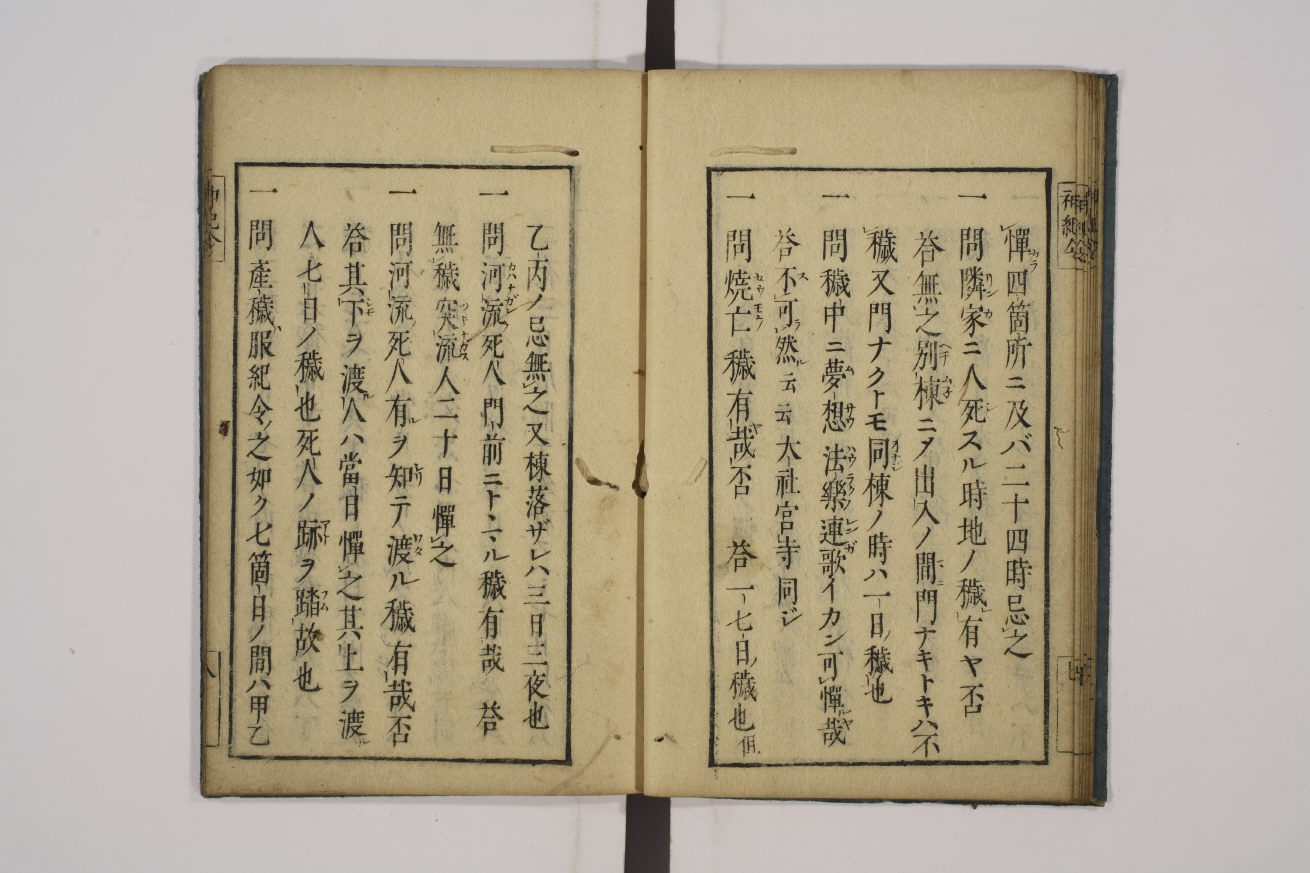 憚四箇所ニ及バ二十四時忌之
一 問隣家ニ人死スル時地ノ穢有ヤ否
答無之別棟ニメ出入ノ間門ナキトキハ不
穢又門ナクトモ同棟ノ時ハ一日ノ穢也
一 問穢中ニ夢想法樂連歌イカン可憚哉
答不可然云云大社宮寺同ジ
一 問焼亡穢有哉否 答一七日ノ穢也但
乙丙ノ忌無之又棟落ザレハ三日三夜也
一 問河流死人門前ニトヾマル穢有哉 答
無穢突流人二十日憚之
一 問河流死人有ヲ知テ渡ル穢有哉否
答其下ヲ渡人ハ當日憚之其上ヲ渡
人七日ノ穢也死人ノ跡ヲ踏故也
一 問産穢服紀令之如ク七箇日ノ間ハ甲乙